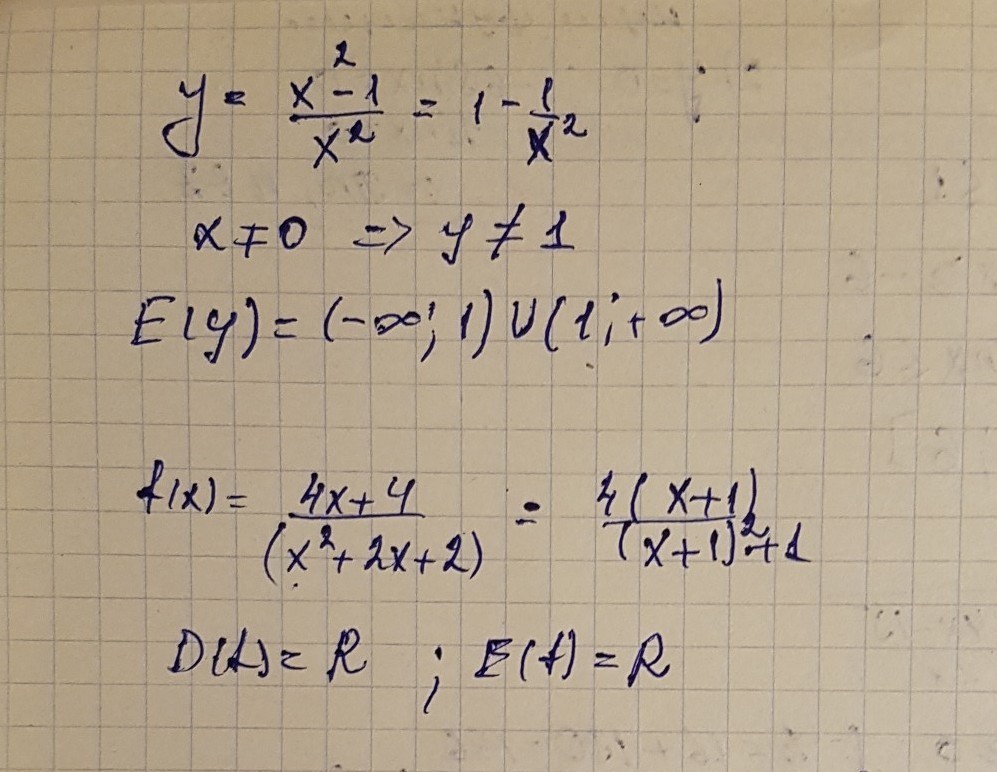 y = (x² - 1)/x² = 1 - 1/x²
x ≠ 0 => y ≠ 1
E(y) = (-∞; 1) ∪ (1; +∞)
f(x) = (4x+4)/(x²+2x+2) = 4(x+1)/((x+1)²+1)
D(f) = R ; E(f) = R